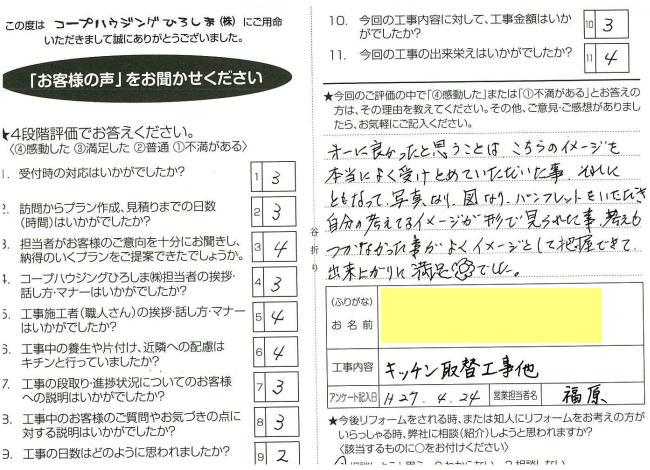 この度は コープハウジングひろしま(株) にご用命
いただきまして誠にありがとうございました。
「お客様の声」をお聞かせください
★4段階評価でお答えください。
〈④感動した ③満足した ②普通 ①不満がある〉
1. 受付時の対応はいかがでしたか? 1 3
2. 訪問からプラン作成、見積りまでの日数
(時間)はいかがでしたか? 2 3
3. 担当者がお客様のご意向を十分にお聞きし、
納得のいくプランをご提案できたでしょうか。 3 4
4. コープハウジングひろしま㈱担当者の挨拶・
話し方・マナーはいかがでしたか? 4 3
5. 工事施工者(職人さん)の挨拶・話し方・マナー
はいかがでしたか? 5 4
6. 工事中の養生や片付け、近隣への配慮は
キチンと行っていましたか? 6 4
7. 工事の段取り・進捗状況についてのお客様
への説明はいかがでしたか? 7 3
8. 工事中のお客様のご質問やお気づきの点に
対する説明はいかがでしたか? 8 3
9. 工事の日数はどのように思われましたか? 9 2
谷折り
10. 今回の工事内容に対して、工事金額はいか
がでしたか? 10 3
11. 今回の工事の出来栄えはいかがでしたか? 11 4
★今回のご評価の中で「④感動した」または「①不満がある」とお答えの
方は、その理由を教えてください。その他、ご意見・ご感想がありまし
たら、お気軽にご記入ください。
オ一に良かったと思うことは こちらのイメージを
本当によく受けとめていただいた事、それに
ともなって、写真なり、図なり、パンフレットをいただき
自分の考えてるイメージが形で見られた事、考えも
つかなかった事がよくイメージとして把握できて、
出来上がりに満足でした。
(ふりがな)
お 名 前
工事内容 キッチン取替工事他
アンケート記入日 H27.4.24 営業担当者名 福原
★今後リフォームをされる時、または知人にリフォームをお考えの方が
いらっしゃる時、弊社に相談(紹介)しようと思われますか?
〈該当するものに○をお付けください〉